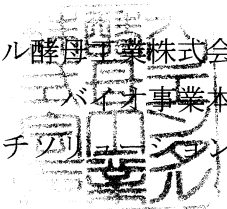 ル酵母工業株式会
バイオ事業本
チソリューション